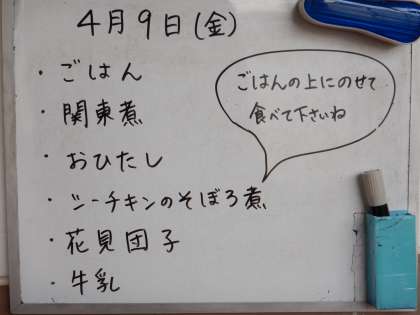 4月9日(金)
・ごはん
・関東煮
・おひたし
・シーチキンのそぼろ煮
・花見団子
・牛乳
ごはんの上にのせて
食べて下さいね